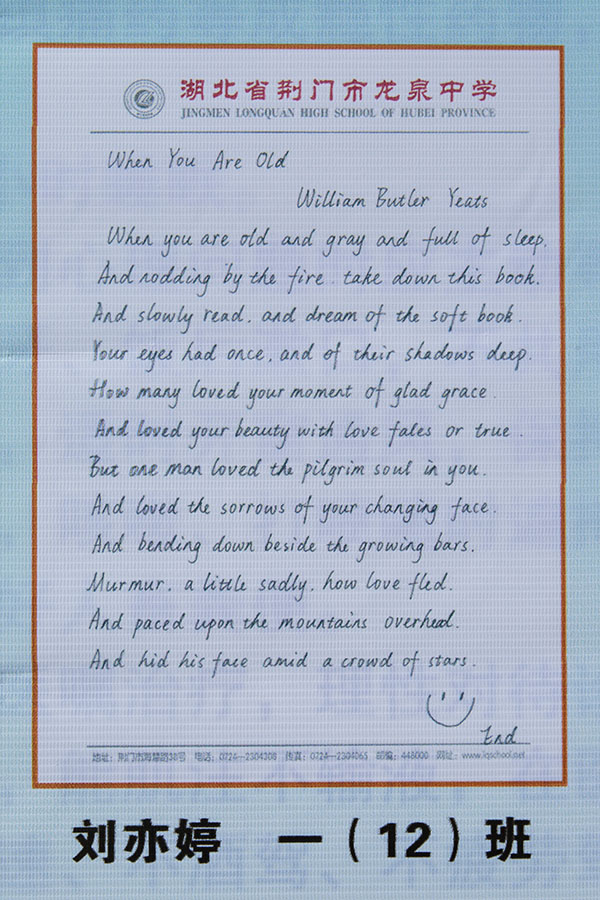 湖北省荆门市龙泉中学
JINGMEN LONGQUAN HIGH SCHOOL OF HUBEI PROVINCE
When You Are Old
William Butler Yeats
When you are old and gray and full of sleep,
And nodding by the fire. take down this book.
And slowly read, and dream of the soft book.
Your eyes had once, and of their shadows deep.
How many loved your moment of glad grace.
And loved your beauty with love fales or true.
But one man loved the pilgrim soul in you.
And loved the sorrows of your changing face.
And bending down beside the growing bars.
Murmur, a little sadly, how love fled.
And paced upon the mountains overhead.
And hid his face amid a crowd of stars.
End
地址：荆门市海慧路38号 电话：0724—2304208 传真：0724—2304065 邮编：448000 网址：www.lqschool.net
刘亦婷 一（12）班